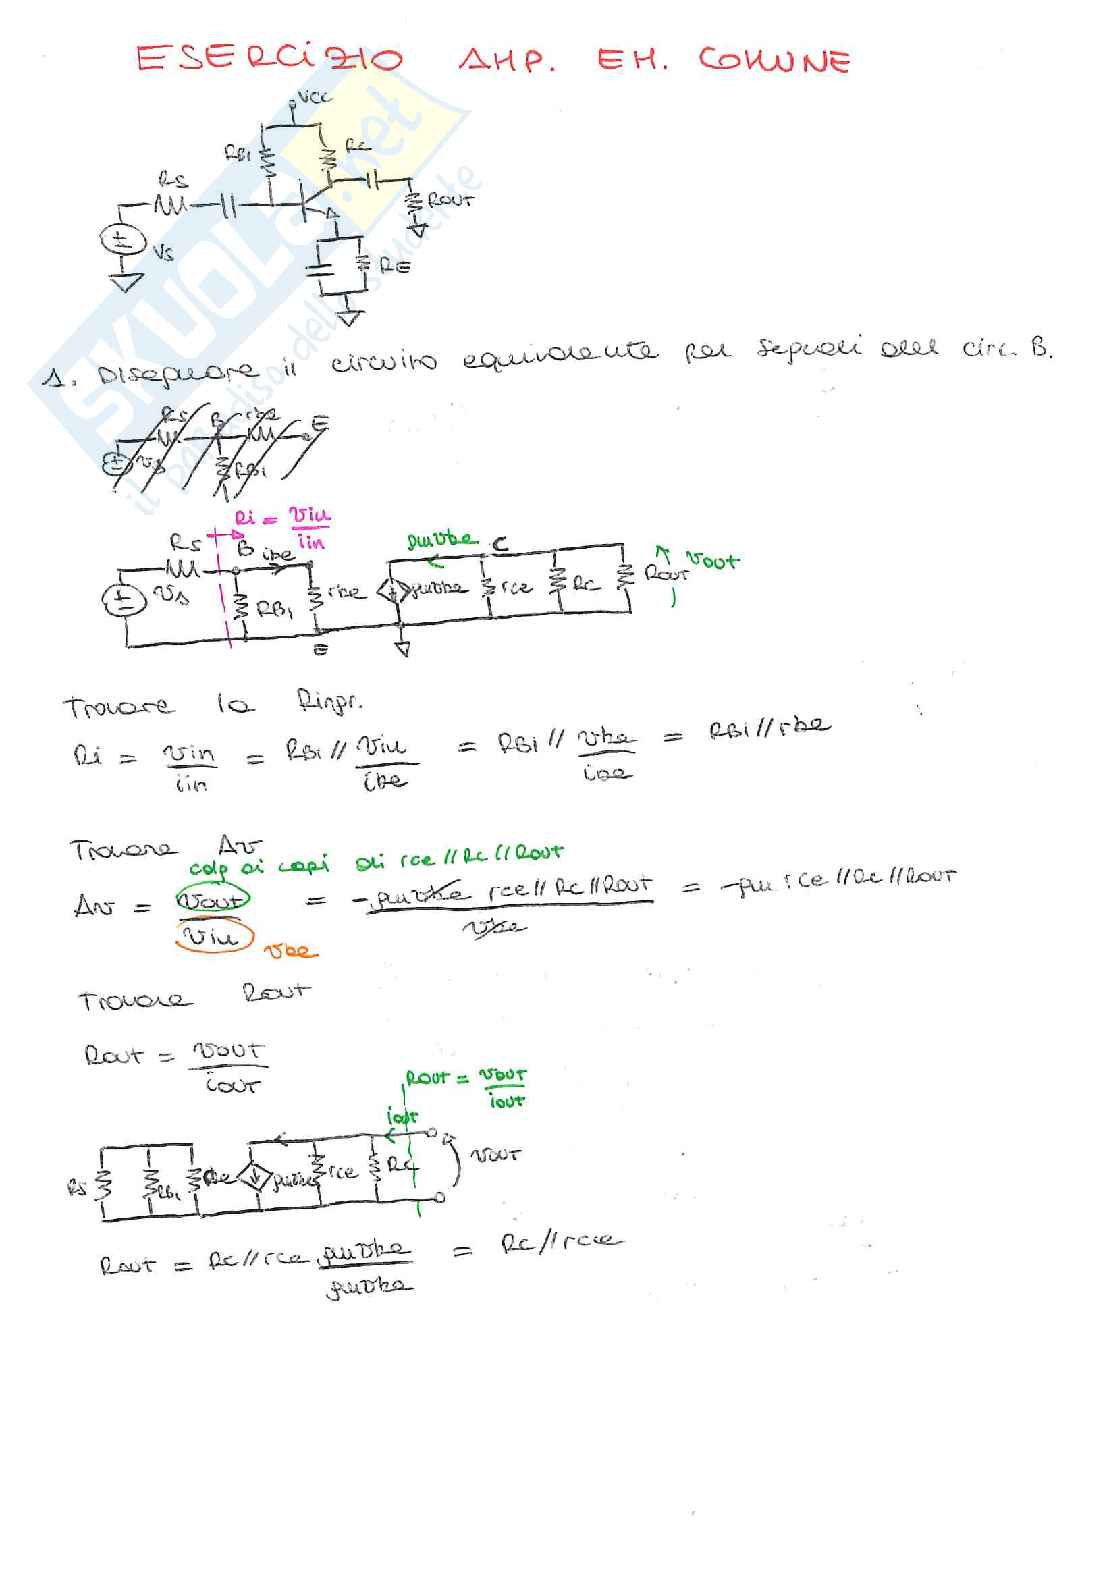 ESERCIZIO AMP. EM. COMUNE
VCC
RB1
RC
RS
ROUT
VS
RE
SKUOLA.net
il paradiso dello studente
1. Disegnare il circuito equivalente per segnali del circ. B.
RS B rbe E
vs
RB1
Ri = vin / iin
gmvbe C
RS B ibe
vs RB1 rbe gmvbe rce RC ROUT vout
E
Trovare la Ringr.
Ri = vin / iin = RB1 // vin / ibe = RB1 // vbe / ibe = RB1 // rbe
Trovare Av
cdp ai capi di rce // RC // Rout
Av = vout / vin = -gmvbe rce // RC // Rout / vbe = -gm rce // RC // Rout
vbe
Trovare Rout
Rout = vout / iout
Rout = vout / iout
iout
RS RB1 rbe gmvbe rce RC vout
Rout = RC // rce gmvbe / gmvbe = RC // rce